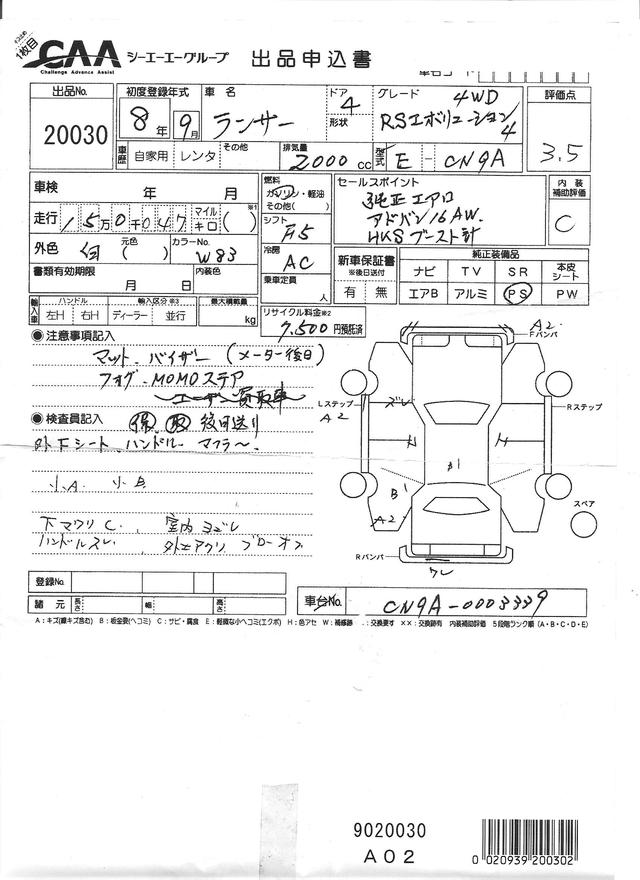 1枚目
CAA シーエーエーグループ 出品申込書
Challenge Advance Assist
出品No. 初度登録年式 車名 ドア 4 グレード 4WD 評価点
20030 8年 9月 ランサー 形状 RSエボリューション4 3.5
車歴 自家用 レンタ その他 排気量 2000cc 型式 E-CN9A
車検 年 月 燃料 ガソリン・軽油 その他( ) セールスポイント 内装補助評価
走行 15万0千047 マイル キロ ( ) ※1 シフト 純正エアロ C
アドバン16AW.
HKSブースト計
外色 白 元色 ( ) カラーNo. W83 冷房 AC
書類有効期限 月 日 内装色 乗車定員 人
新車保証書 ※後日送付 有 無
純正装備品
ナビ TV SR 本皮シート
エアB アルミ PS PW
輸入車 ハンドル 左H 右H 輸入区分※3 ディーラー 並行 最大積載量 kg
リサイクル料金※2
7,500円預託済
●注意事項記入
マット.バイザー(メーター後日)
フォグ.MOMOステア
ユーザー買取車
●検査員記入 保 取 後日送り
外下シート.ハンドル マフラー
小A. 小B
下マワリC. 室内ヨゴレ
ハンドルスレ
登録No.
諸元 長さ 幅 高さ
A2 Fバンパ
Lステップ A2
ズレ
Rステップ
B1
B1
A2
スペア
Rバンパ
ワレ
車台No. CN9A-0003339
A:キズ(線キズ含む) B:板金要(ヘコミ) C:サビ・腐食 E:軽微な小ヘコミ(エクボ) H:色アセ W:補修跡 .:交換要す ××:交換跡有 内装補助評価 5段階ランク順(A・B・C・D・E)
9020030
A02
0 020939 200302